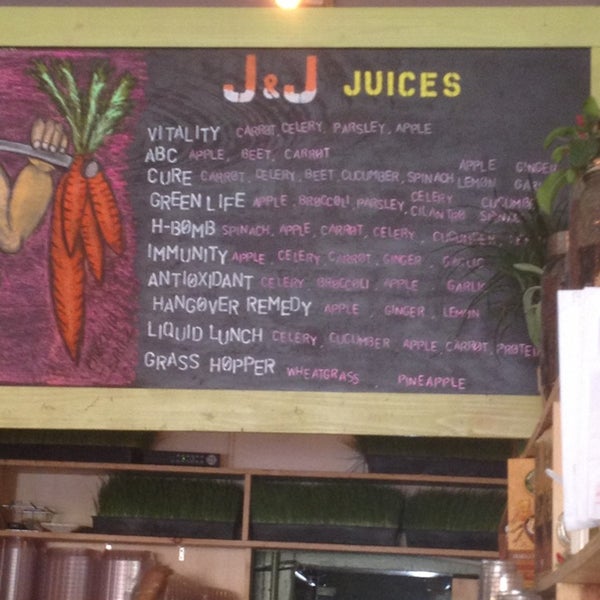 J&J JUICES
VITALITY CARROT, CELERY, PARSLEY, APPLE
ABC APPLE, BEET, CARROT
CURE CARROT, CELERY, BEET, CUCUMBER, SPINACH APPLE GINGER LEMON
GREEN LIFE APPLE, BROCCOLI, PARSLEY, CELERY CILANTRO
H-BOMB SPINACH, APPLE, CARROT, CELERY, CUCUMBER,
IMMUNITY APPLE, CELERY, CARROT, GINGER, GARLIC
ANTIOXIDANT CELERY, BROCCOLI, APPLE, GARLIC
HANGOVER REMEDY APPLE, GINGER, LEMON
LIQUID LUNCH CELERY, CUCUMBER, APPLE, CARROT,
GRASS HOPPER WHEATGRASS, PINEAPPLE